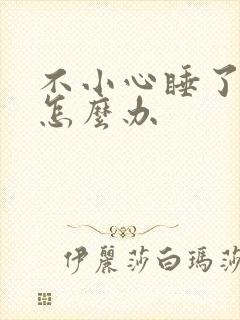 不小心睡了
怎麼办
伊麗莎白瑪莎